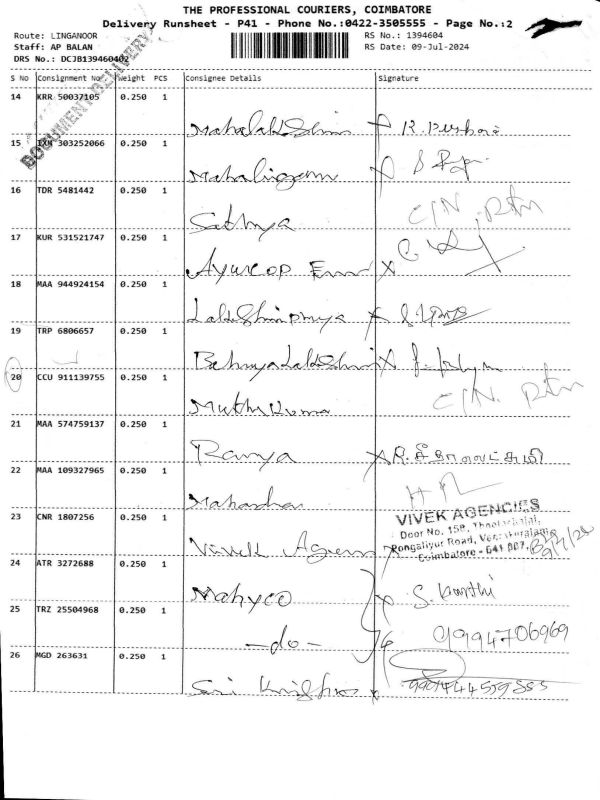 THE PROFESSIONAL COURIERS, COIMBATORE
Delivery Runsheet - P41 - Phone No.:0422-3505555 - Page No.:2
Route: LINGANOOR
RS No.: 1394604
Staff: AP BALAN
RS Date: 09-Jul-2024
DRS No.: DCJB139460402
DOCUMENT DELIVERY
S No Consignment No Weight PCS Consignee Details Signature
14 KRR 50037105 0.250 1
Mahalakshmi
15 303252066 0.250 1
Mahalingam
16 TDR 5481442 0.250 1
Sathya C/N. Rtn
17 KUR 531521747 0.250 1
Ayurcop X
18 MAA 944924154 0.250 1
Lakshmipriya
19 TRP 6806657 0.250 1
X
20 CCU 911139755 0.250 1
Muthukumar C/N. Rtn
21 MAA 574759137 0.250 1
Ramya X
22 MAA 109327965 0.250 1
23 CNR 1807256 0.250 1
Vivek
VIVEK AGENCIES
Door No. 158,
Road,
Coimbatore - 641 007.
24 ATR 3272688 0.250 1
Mahyco X S. Karthi
25 TRZ 25504968 0.250 1
-do- 9994706969
26 MGD 263631 0.250 1
Sri Krishna X